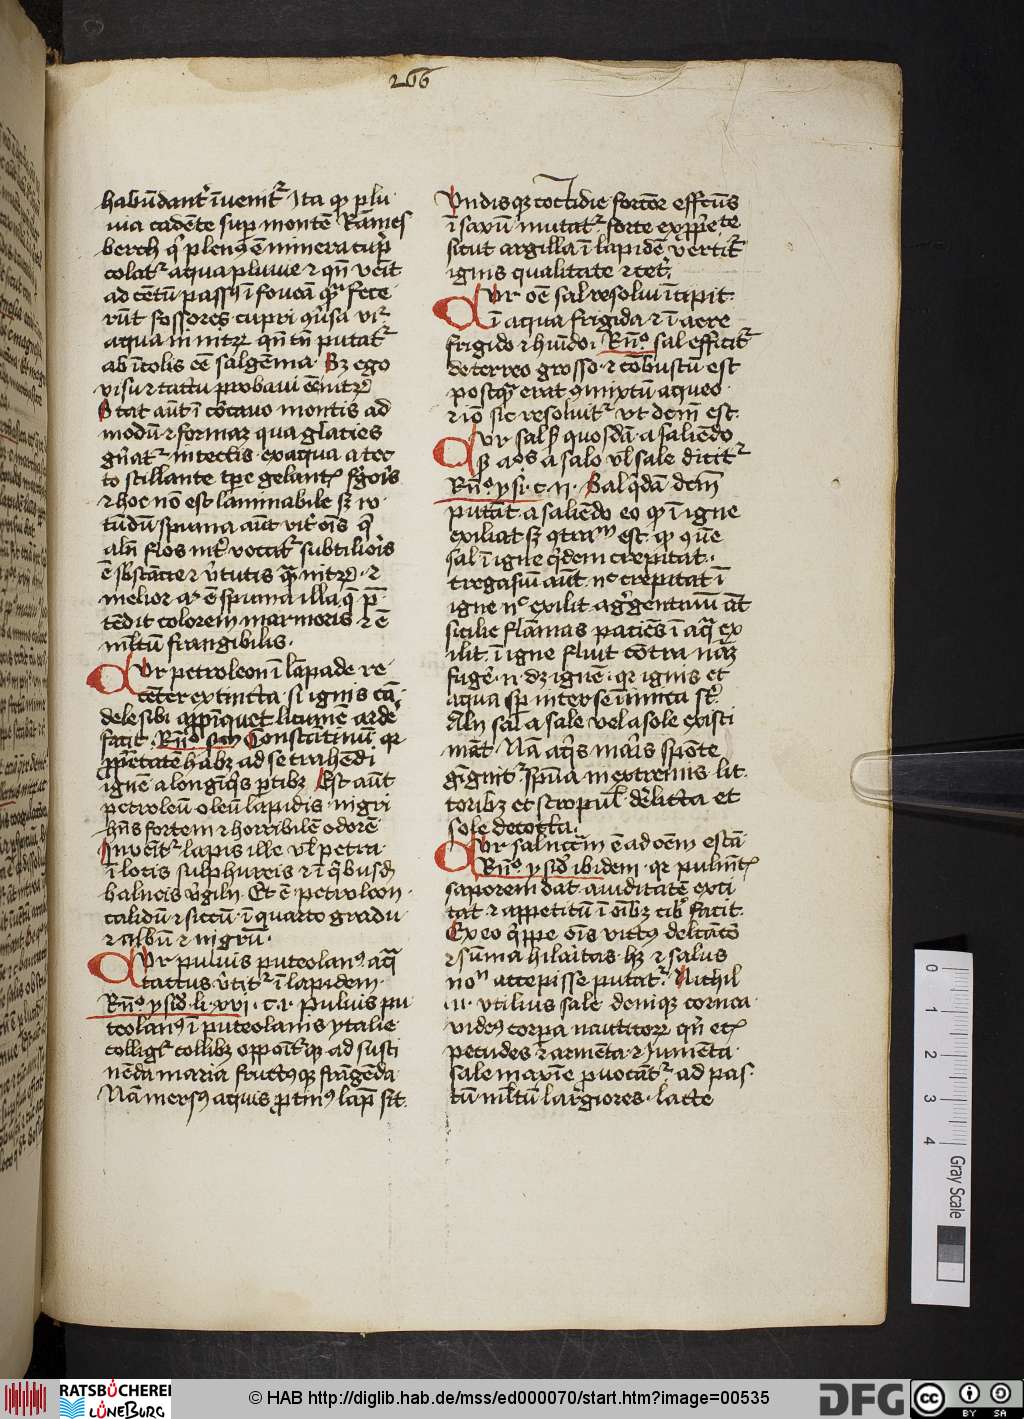 266
habūdant᷑ īvenit᷑ Ita qꝫ plu
uia cadēte sup montē Rāmes
berch q᷑ plenꝰ ē minera cup᷑
colat᷑ aqua pluuie ⁊ qn̄ venit
ad centū passꝰ ī foueā quā fece
rūt fossores cupri
aqua in nitrꝫ qn̄ putat᷑
ab īcolis eē salgēma Sꝫ ego
visu ⁊ tactu probaui eē nitrꝫ
Stat aūt ī cōcauo montis ad
modū ⁊ formaꝫ qua glacies
gn̄at᷑ in tectis ex aqua a tec
to stillante tꝑe gelante frigoris
⁊ hoc nō est laminabile sꝫ ro
tūdū spuma aūt vit᷑ oīs q̄
aln̄ flos nit᷑ vocat᷑ subtilioris
ē sb̄stācie ⁊ v᷑tutis quā nitrꝫ ⁊
melior ē spuma illa q̄ p̄
tēdit colorem marmoris ⁊ ē
ml̄tum frangibilis
Cur petroleon ī lāpade re
center extincta si ignis cā
dele sibi appīquet licumē ardē
facit Rn̄º scd̄m Constātinū qꝛ
ꝓprietatē habꝫ ad se trahēdi
ignē a longīqꝰs ꝑtibꝫ Est aūt
petroleū oleū lapidis nigri
hn̄s fortem ⁊ horribilē odorē
Inuenit᷑ lapis ille vl̄ petra
ī locis sulphureis ⁊ ī qbusdā
balneis v᷑giln Et ē petroleon
calidū ⁊ siccū ī quarto gradu
⁊ albū ⁊ nigrū
Cur puluis puteolanꝰ aq̄
tactus v᷑tit᷑ ī lapidem
Rn̄º ysid᷑ li xvi c i Puluis pu
teolanꝰ ī puteolanis ytalie
colligit᷑ collibꝫ oppoīt᷑qꝫ ad susti
nēda maria fluctꝰqꝫ frāgēda
Nā mersꝰ aquis ꝓtinꝰ lap̄ sit
Vndisqꝫ cottidie fortior effectꝰ
ī saxū mutat᷑ forte expp̄iete
sicut argilla ī lapidē vertit᷑
ignis qualitate ⁊ cet᷑
Cur oē sal resolui īcipit
ī aqua frigida ⁊ ī aere
frigido ⁊ hūido Rn̄º sal efficit᷑
de terreo grosso ⁊ cōbustū est
postquā erat ꝯmixtū aqueo
⁊ iō sic resoluit᷑ vt dcm̄ est
Cur sal quosdā a saliendo
a salo vl̄ sale dicit᷑
Rn̄º ysi c ii Sal qdā dcm̄
putāt a saliēdo eo qꝫ ī igne
exiliat sꝫ ꝯtra est qꝫ ꝯue
sal ī igne qdem crepitat
tregasiū aūt nc crepitat ī
igne nc exilit agrigentinū aūt
sicilie flāmas paciēs ī aq̄ ex
ilit ī igne fluit cōtra naꝫ
fuge n dꝫ ignē qꝛ ignis et
aqua sp̄ inter se inimica st̄
Aln̄ sal a sale vel a sole existi
māt Nā aqis maris spōte
gignit᷑ spūa in extremis lit
toribꝫ et scropul᷑ derelicta et
sole decocta
Cur sal necc̄m ē ad oēm escā
Rn̄º ysid᷑ ibidem qꝛ pulmēt
saporem dat auiditatē exci
tat ⁊ appetitū ī oībꝫ cibꝰ facit
Ex eo qppe oīs victꝰ delcāco
⁊ sūma hilaritas hꝫ ⁊ salus
nom accepisse putat᷑ Nichil
n vtilius sale deniqꝫ cornea
videꝰ corpa nauticorꝫ qn̄ et
pecudes ⁊ armēta ⁊ Jumēta
sale maxīe ꝓuocāt᷑ ad pas
tū ml̄tū largiores lacte
0 1 2 3 4
Gray Scale
RATSBÜCHEREI
LÜNEBURG
© HAB http://diglib.hab.de/mss/ed000070/start.htm?image=00535
DFG
cc BY SA